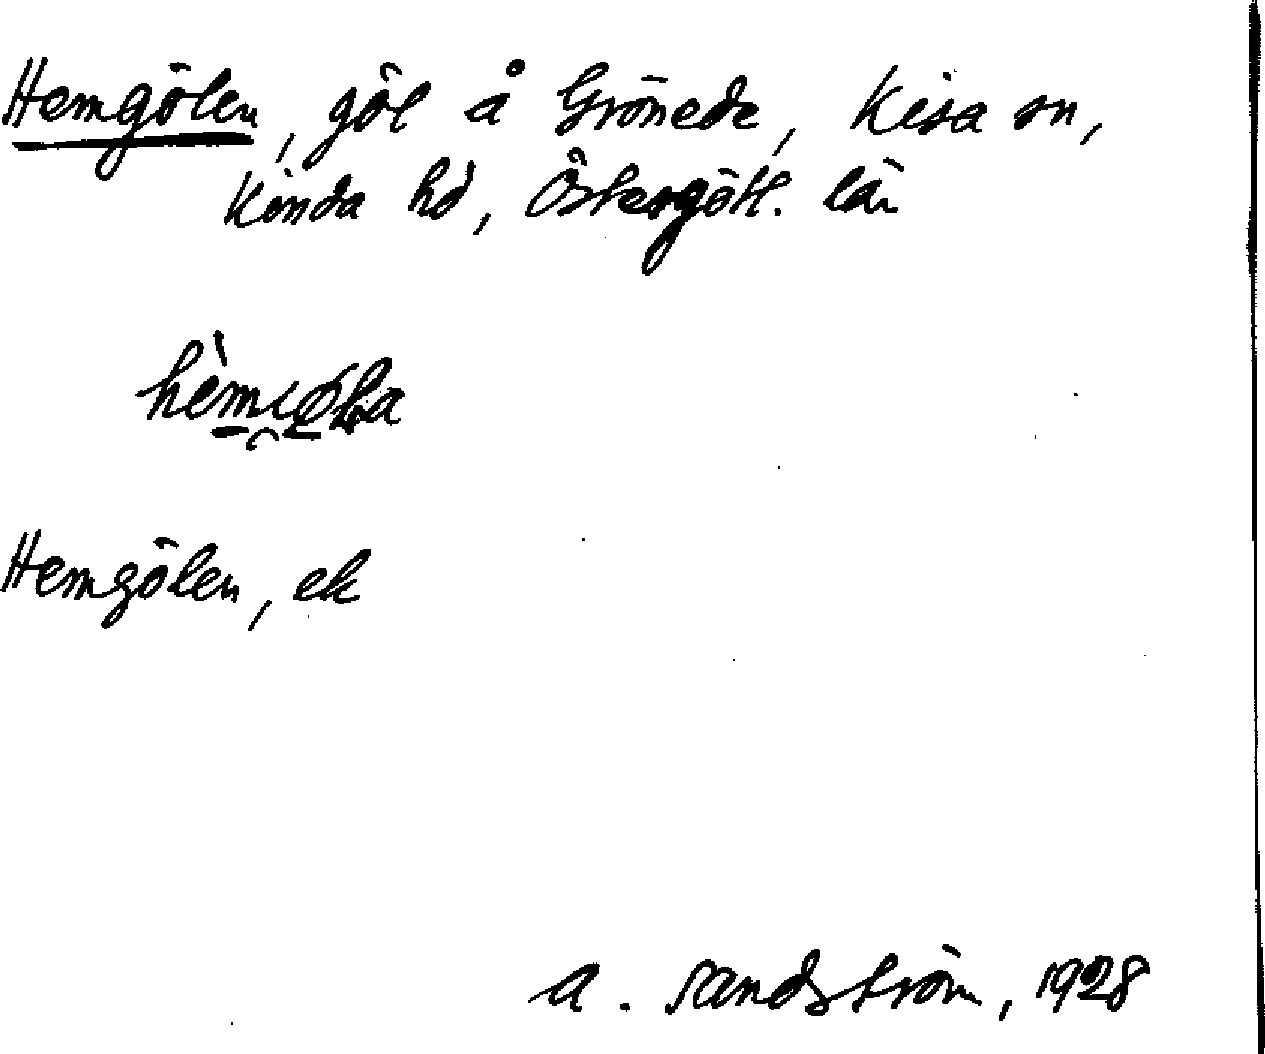 Hemgölen, göl å Grönede, Kisa sn,
Kinda hd, Östergötl. län
Hemgölen, ek
A. Sandström, 1928